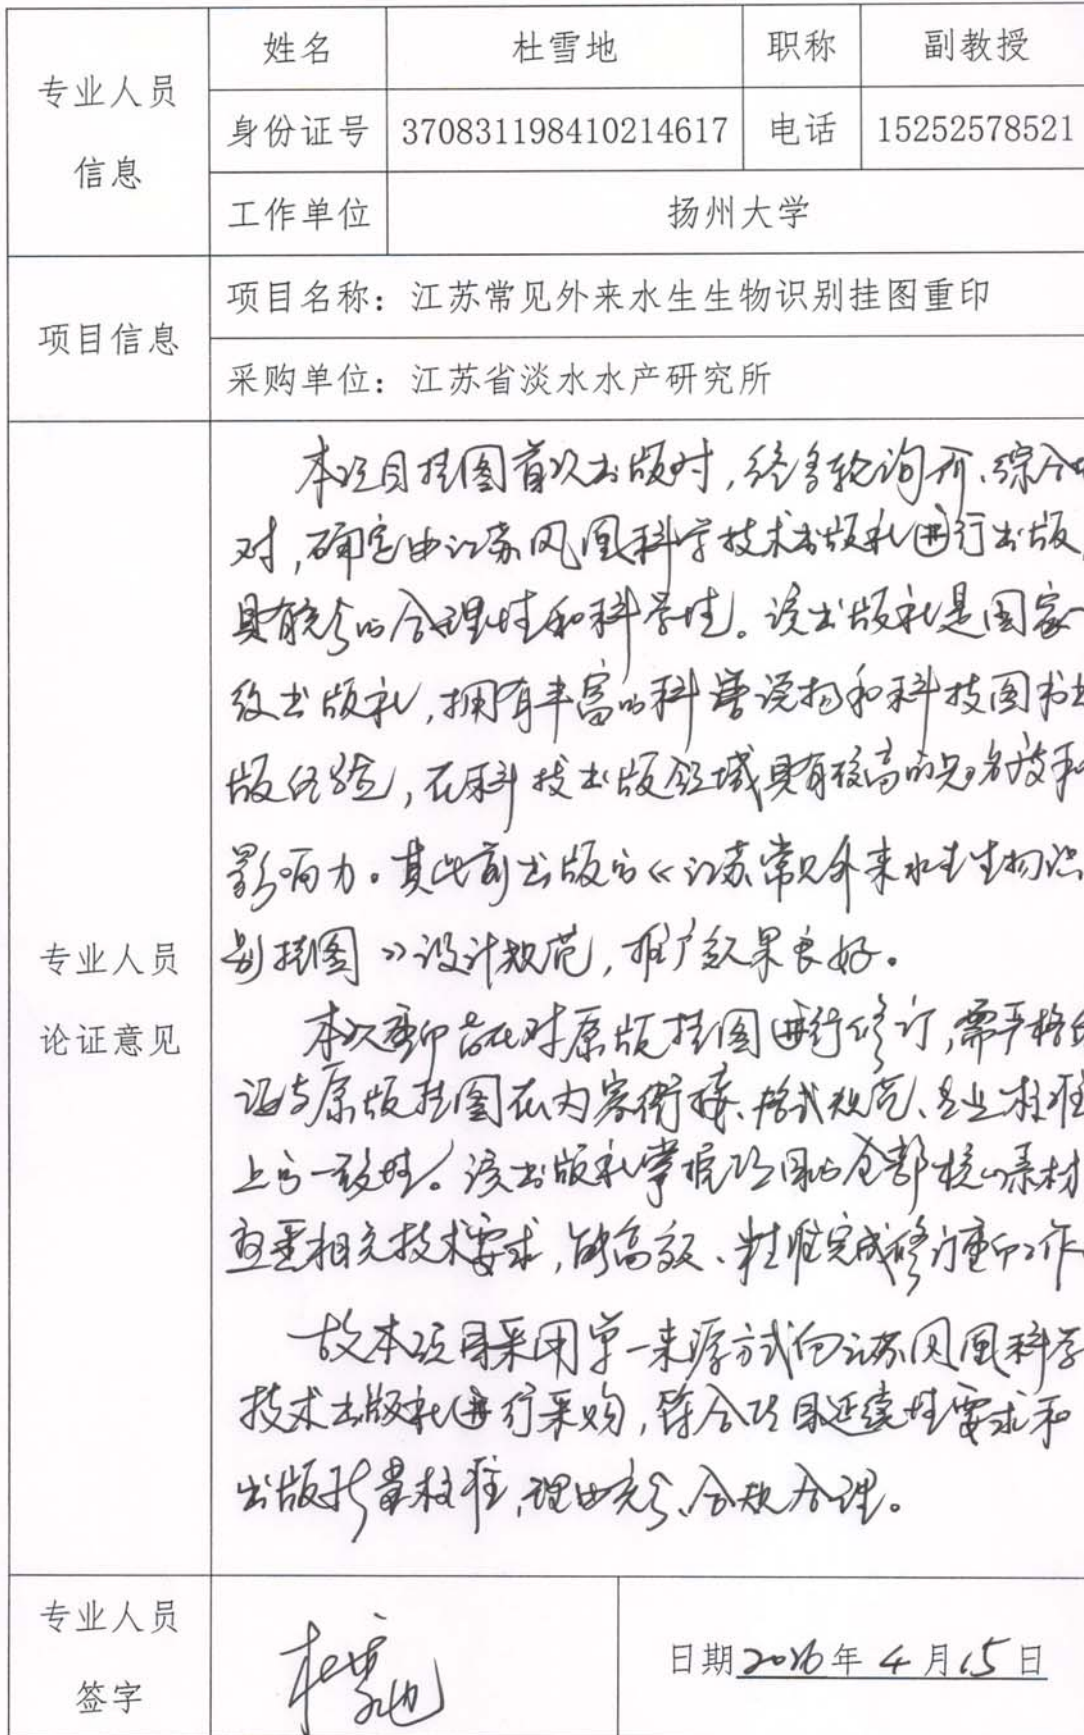 专业人员
信息
姓名 杜雪地 职称 副教授
身份证号 370831198410214617 电话 15252578521
工作单位 扬州大学
项目信息
项目名称：江苏常见外来水生生物识别挂图重印
采购单位：江苏省淡水水产研究所
专业人员
论证意见
本项目挂图首次出版时，经多轮询价、综合
对，确定由江苏凤凰科学技术出版社进行出版，
具有充分的合理性和科学性。该出版社是国家一
级出版社，拥有丰富的科普读物和科技图书出
版经验，在科技出版领域具有较高的知名度和
影响力。其此前出版的《江苏常见外来水生生物识
别挂图》设计规范，推广效果良好。
本次重印旨在对原版挂图进行修订，需严格
证与原版挂图在内容衔接、格式规范、专业标准
上的一致性。该出版社掌握项目的全部核心素材
熟悉相关技术要求，能高效、精准完成修订重印工作
故本项目采用单一来源方式向江苏凤凰科学
技术出版社进行采购，符合项目延续性要求和
出版质量标准，理由充分、合规合理。
专业人员
签字
杜雪地
日期 2026年 4月15日